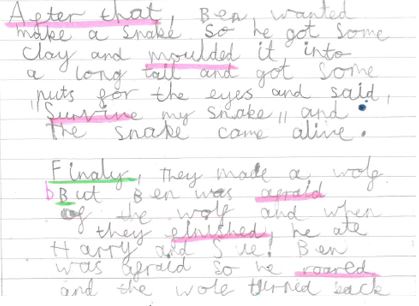 After that, Ben wanted
make a snake. So he got some
clay and moulded it into
a long tail and got some
nuts for the eyes and said,
"Survive my snake" and
the snake came alive.
Finaly, they made a wolf
But Ben was afraid
of the wolf and when
they finished he ate
Harry and Sue! Ben
was afraid so he roared
and the wolf turned back